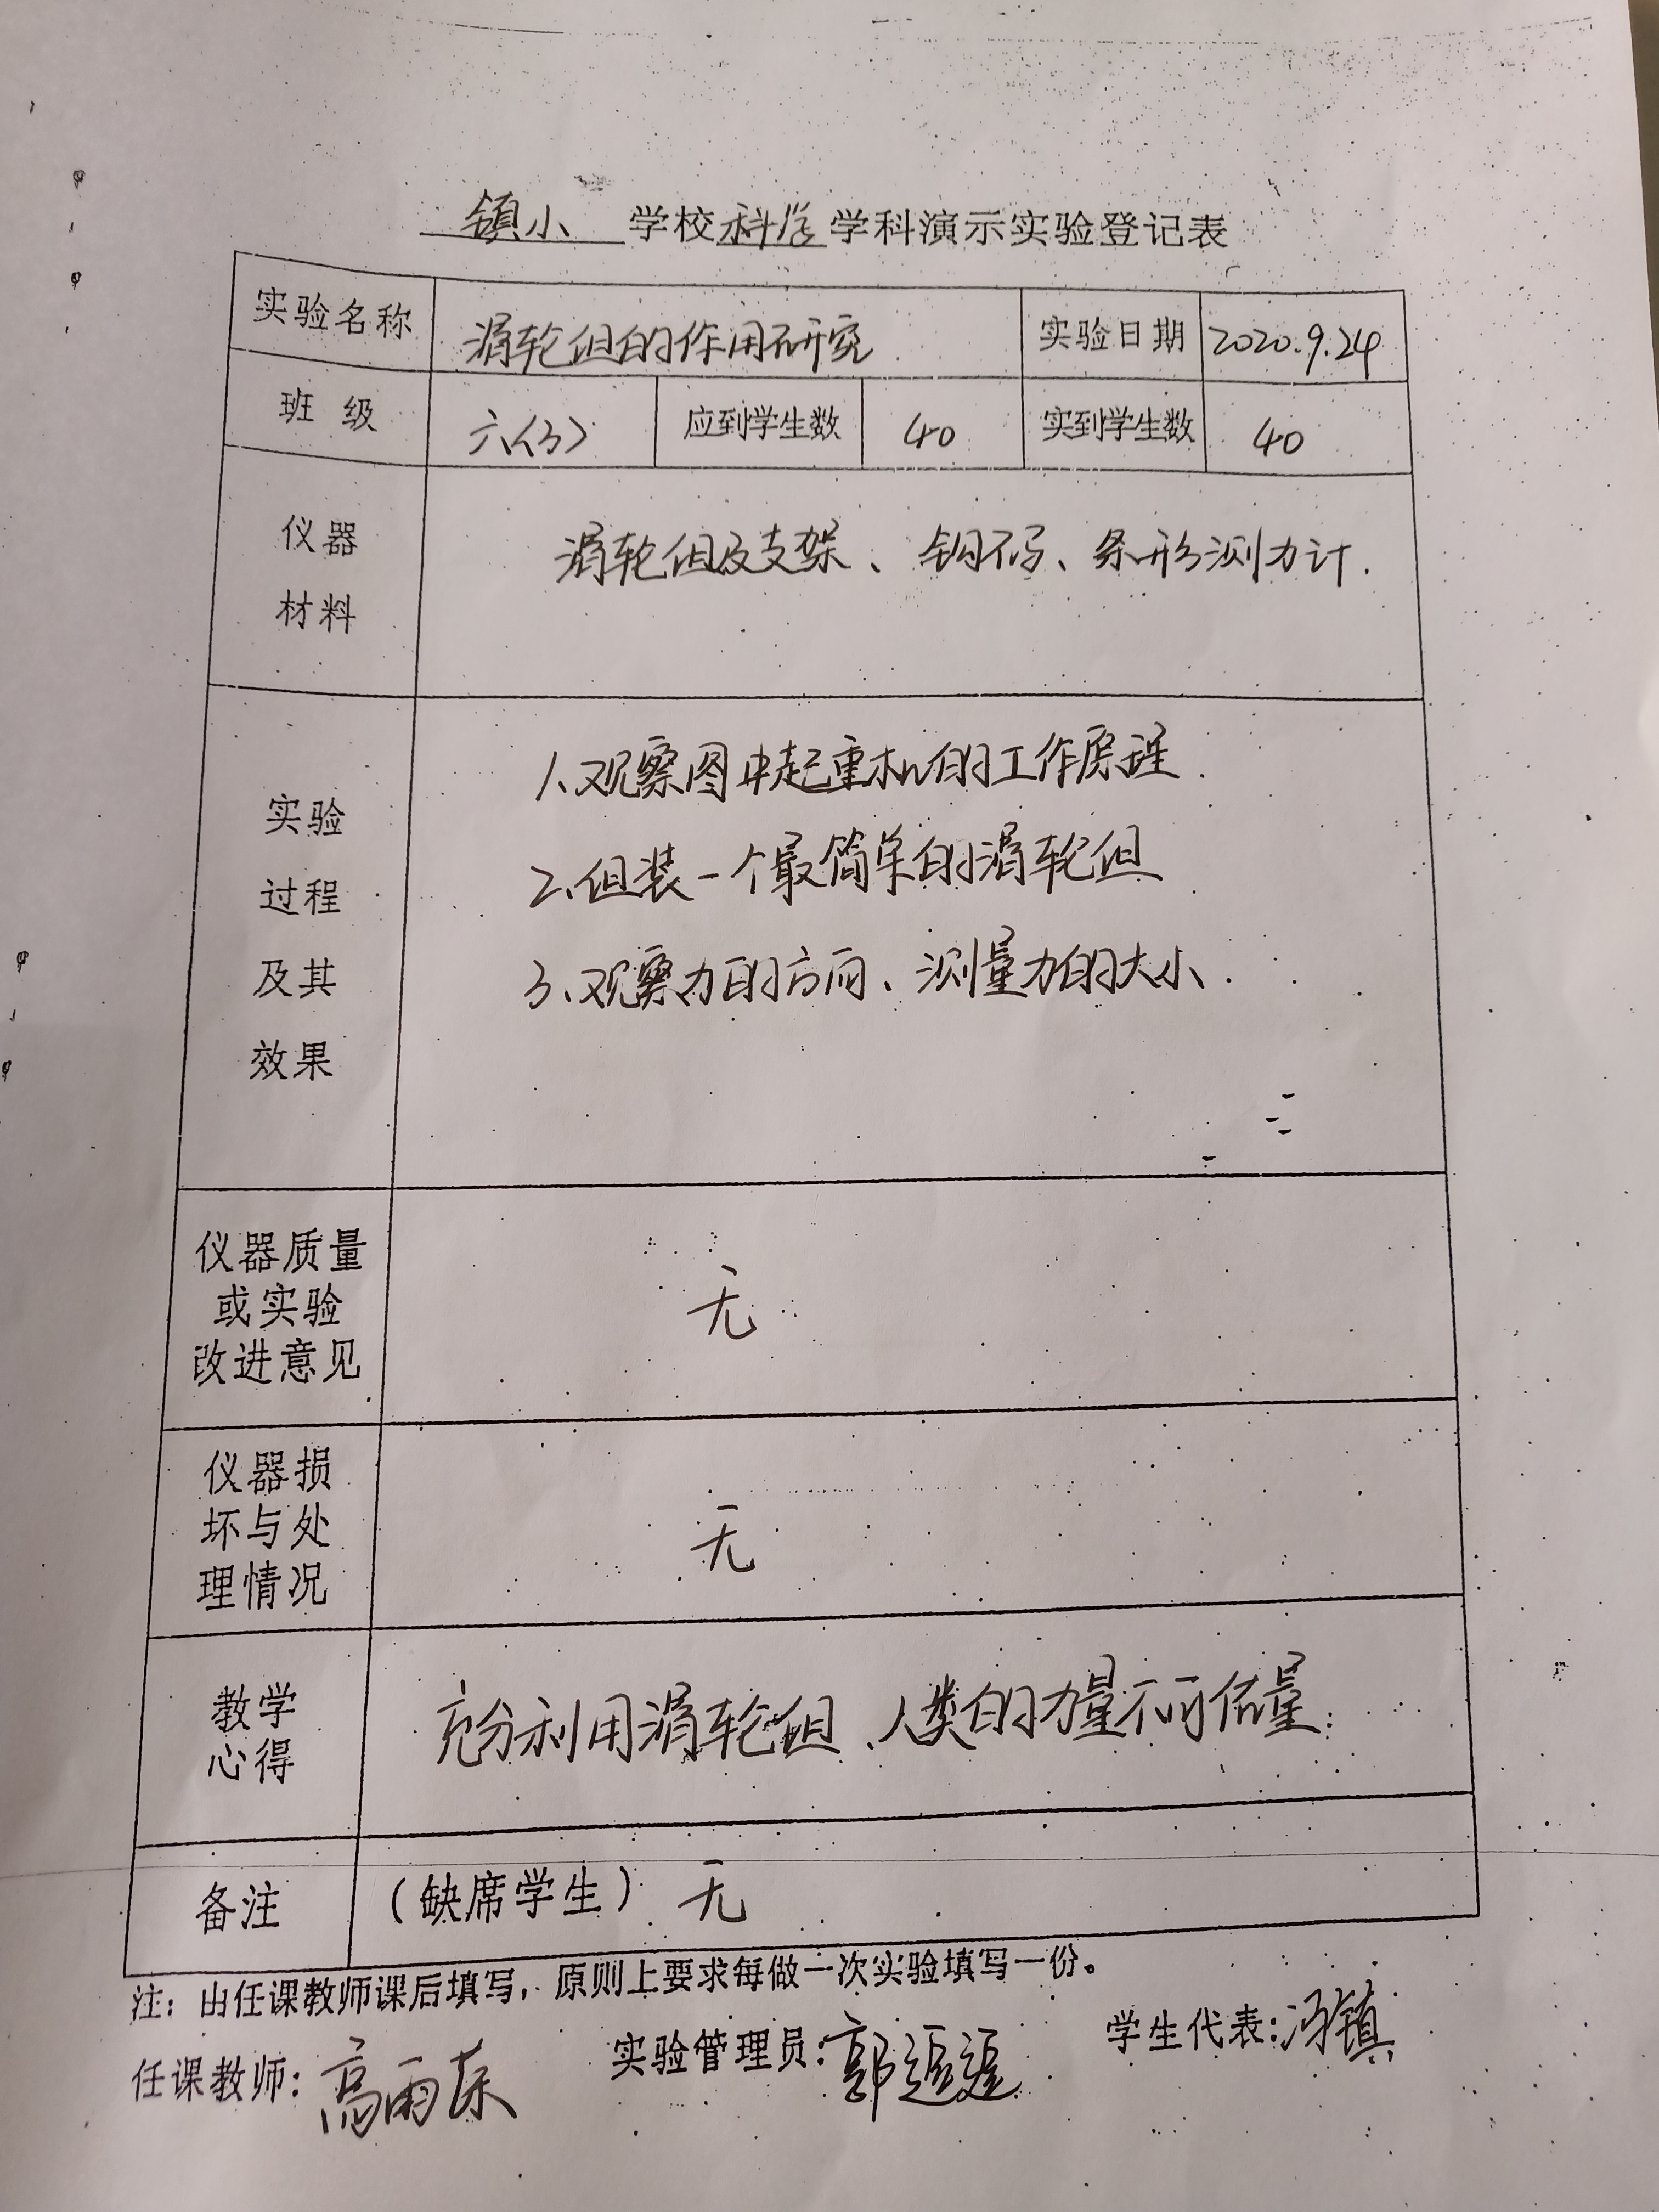 镇小 学校科学学科演示实验登记表
实验名称 滑轮组的作用研究 实验日期 2020.9.24
班 级 六(3) 应到学生数 40 实到学生数 40
仪器
材料
滑轮组及支架、钩码、条形测力计.
实验
过程
及其
效果
1、观察图中起重机的工作原理.
2、组装一个最简单的滑轮组
3、观察力的方向、测量力的大小.
仪器质量
或实验
改进意见
无
仪器损
坏与处
理情况
无
教学
心得
充分利用滑轮组、人类的力量不可估量.
备注 (缺席学生) 无
注：由任课教师课后填写，原则上要求每做一次实验填写一份。
任课教师: 高雨 实验管理员: 郭 学生代表: 冯镇